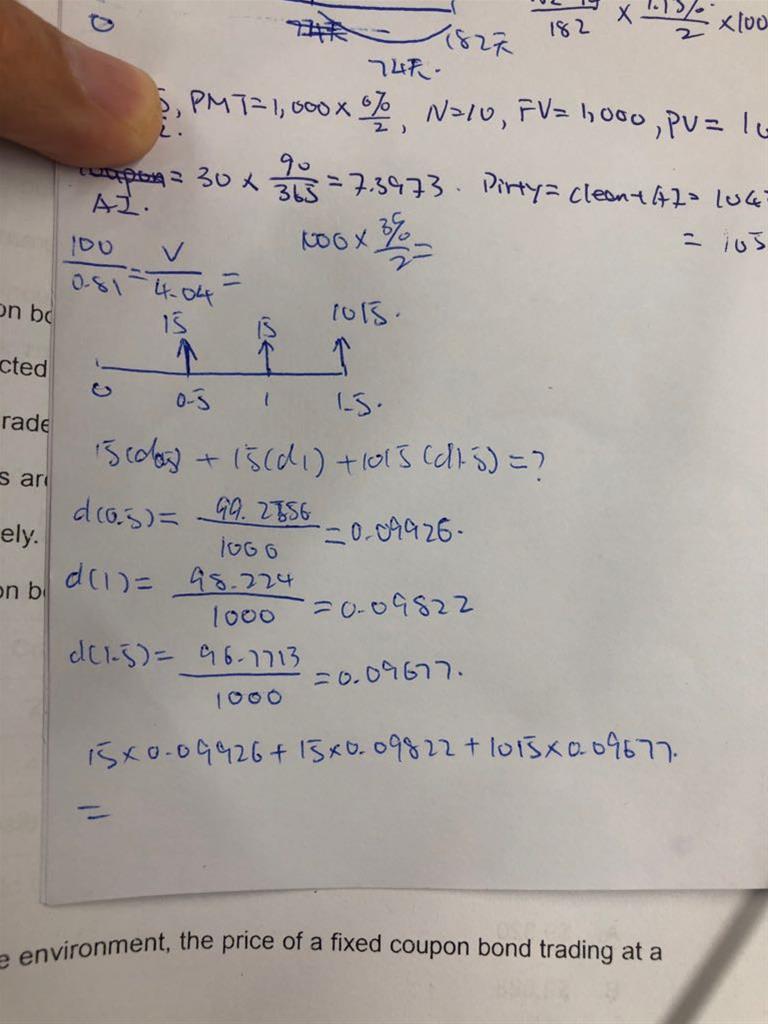 0 74天 182天 182 × 1.15% / 2 × 100
74天.
PMT=1,000 × 6%/2, N=10, FV=1,000, PV=
coupon = 30 × 90/365 = 7.3973. Dirty = clean + AI =
AI.
100/0.81 = V/4.04 = 1000 × 3%/2 =
15 15 1015.
0 0.5 1 1.5.
15(d0.5) + 15(d1) + 1015(d1.5) = ?
d(0.5) = 99.2556/1000 = 0.09926.
d(1) = 98.224/1000 = 0.09822
d(1.5) = 96.7713/1000 = 0.09677.
15 × 0.09926 + 15 × 0.09822 + 1015 × 0.09677.
=
on bo
cted
rade
s are
ely.
on b
e environment, the price of a fixed coupon bond trading at a